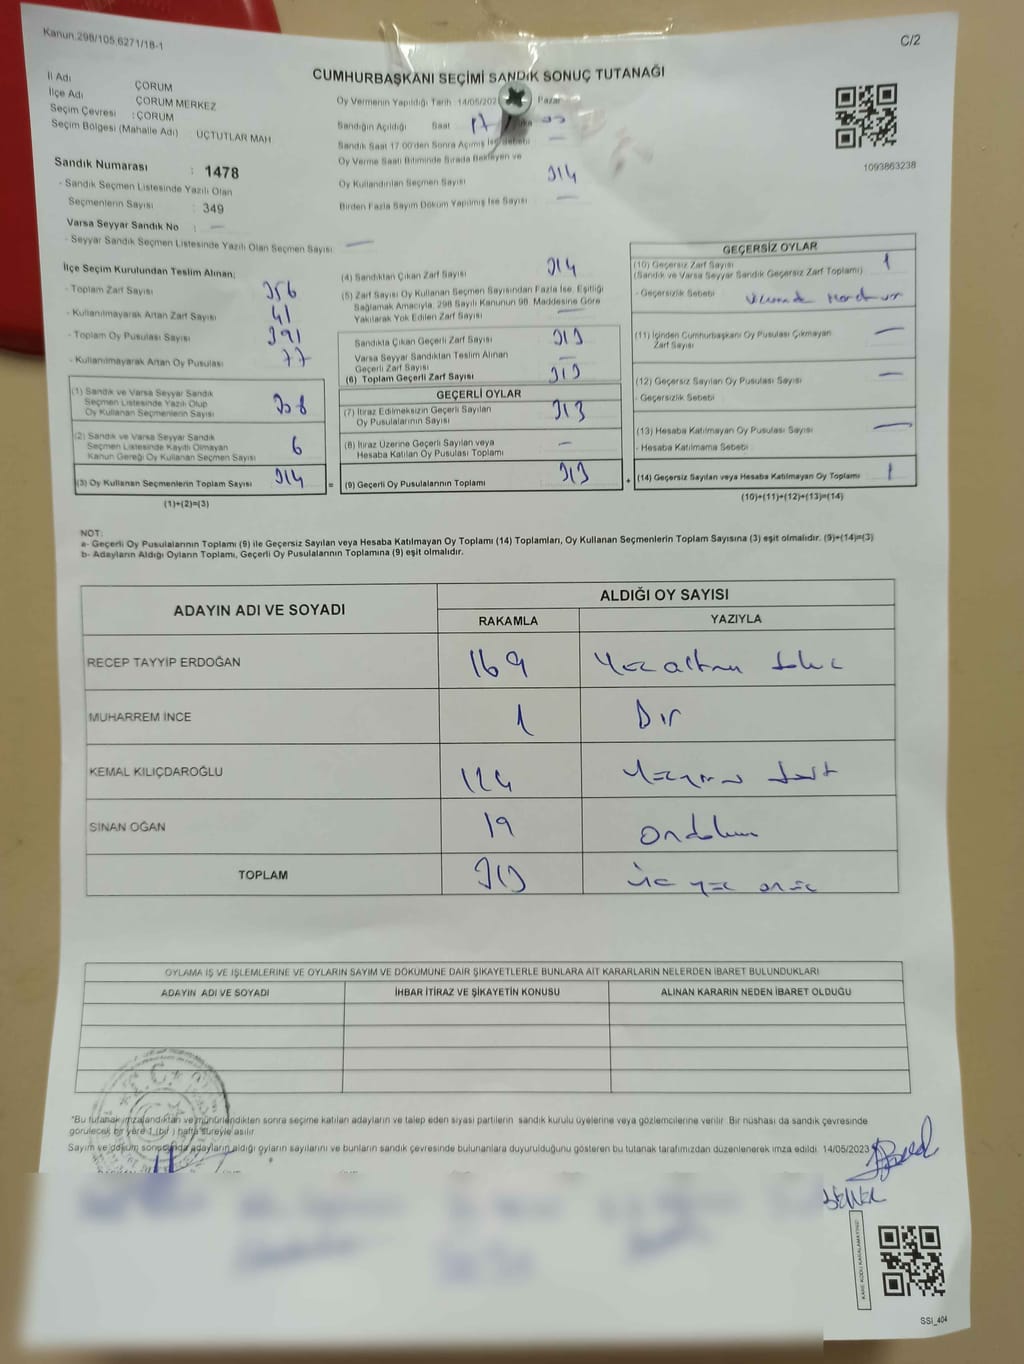 Kanun.298/105,6271/18-1
C/2
CUMHURBAŞKANI SEÇİMİ SANDIK SONUÇ TUTANAĞI
İl Adı ÇORUM
İlçe Adı ÇORUM MERKEZ
Seçim Çevresi : ÇORUM
Seçim Bölgesi (Mahalle Adı) : ÜÇTUTLAR MAH
Sandık Numarası : 1478
- Sandık Seçmen Listesinde Yazılı Olan
Seçmenlerin Sayısı : 349
Varsa Seyyar Sandık No : —
- Seyyar Sandık Seçmen Listesinde Yazılı Olan Seçmen Sayısı —
Oy Vermenin Yapıldığı Tarih 14/05/202 Pazar
Sandığın Açıldığı Saat 17
Sandık Saat 17.00'den Sonra Açılmış İse Sebebi —
Oy Verme Saati Bitiminde Sırada Bekleyen ve
Oy Kullandırılan Seçmen Sayısı 314
Birden Fazla Sayım Döküm Yapılmış İse Sayısı —
1093863238
İlçe Seçim Kurulundan Teslim Alınan;
- Toplam Zarf Sayısı 356
- Kullanılmayarak Artan Zarf Sayısı 41
- Toplam Oy Pusulası Sayısı 391
- Kullanılmayarak Artan Oy Pusulası 77
(1) Sandık ve Varsa Seyyar Sandık
Seçmen Listesinde Yazılı Olup
Oy Kullanan Seçmenlerin Sayısı 308
(2) Sandık ve Varsa Seyyar Sandık
Seçmen Listesinde Kayıtlı Olmayan
Kanun Gereği Oy Kullanan Seçmen Sayısı 6
(3) Oy Kullanan Seçmenlerin Toplam Sayısı 314
(1)+(2)=(3)
(4) Sandıktan Çıkan Zarf Sayısı 314
(5) Zarf Sayısı Oy Kullanan Seçmen Sayısından Fazla İse, Eşitliği
Sağlamak Amacıyla, 298 Sayılı Kanunun 98. Maddesine Göre
Yakılarak Yok Edilen Zarf Sayısı —
Sandıkta Çıkan Geçerli Zarf Sayısı 313
Varsa Seyyar Sandıktan Teslim Alınan
Geçerli Zarf Sayısı —
(6) Toplam Geçerli Zarf Sayısı 313
GEÇERLİ OYLAR
(7) İtiraz Edilmeksizin Geçerli Sayılan
Oy Pusulalarının Sayısı 313
(8) İtiraz Üzerine Geçerli Sayılan veya
Hesaba Katılan Oy Pusulası Toplamı —
= (9) Geçerli Oy Pusulalarının Toplamı 313
GEÇERSİZ OYLAR
(10) Geçersiz Zarf Sayısı 1
(Sandık ve Varsa Seyyar Sandık Geçersiz Zarf Toplamı)
- Geçersizlik Sebebi
(11) İçinden Cumhurbaşkanı Oy Pusulası Çıkmayan
Zarf Sayısı —
(12) Geçersiz Sayılan Oy Pusulası Sayısı —
- Geçersizlik Sebebi
(13) Hesaba Katılmayan Oy Pusulası Sayısı —
- Hesaba Katılmama Sebebi
+ (14) Geçersiz Sayılan veya Hesaba Katılmayan Oy Toplamı 1
(10)+(11)+(12)+(13)=(14)
NOT:
a- Geçerli Oy Pusulalarının Toplamı (9) ile Geçersiz Sayılan veya Hesaba Katılmayan Oy Toplamı (14) Toplamları, Oy Kullanan Seçmenlerin Toplam Sayısına (3) eşit olmalıdır. (9)+(14)=(3)
b- Adayların Aldığı Oyların Toplamı, Geçerli Oy Pusulalarının Toplamına (9) eşit olmalıdır.
ADAYIN ADI VE SOYADI ALDIĞI OY SAYISI
RAKAMLA YAZIYLA
RECEP TAYYİP ERDOĞAN 169 Yüz altmış dokuz
MUHARREM İNCE 1 Bir
KEMAL KILIÇDAROĞLU 124 Yüzyirmi dört
SİNAN OĞAN 19 Ondokuz
TOPLAM 313 üç yüz onüç
OYLAMA İŞ VE İŞLEMLERİNE VE OYLARIN SAYIM VE DÖKÜMÜNE DAİR ŞİKAYETLERLE BUNLARA AİT KARARLARIN NELERDEN İBARET BULUNDUKLARI
ADAYIN ADI VE SOYADI İHBAR İTİRAZ VE ŞİKAYETİN KONUSU ALINAN KARARIN NEDEN İBARET OLDUĞU
*Bu tutanak imzalandıktan ve mühürlendikten sonra seçime katılan adayların ve talep eden siyasi partilerin sandık kurulu üyelerine veya gözlemcilerine verilir. Bir nüshası da sandık çevresinde
görülecek bir yere 1 (bir) hafta süreyle asılır.
Sayım ve döküm sonucunda adayların aldığı oyların sayılarını ve bunların sandık çevresinde bulunanlara duyurulduğunu gösteren bu tutanak tarafımızdan düzenlenerek imza edildi. 14/05/2023
SSI_404